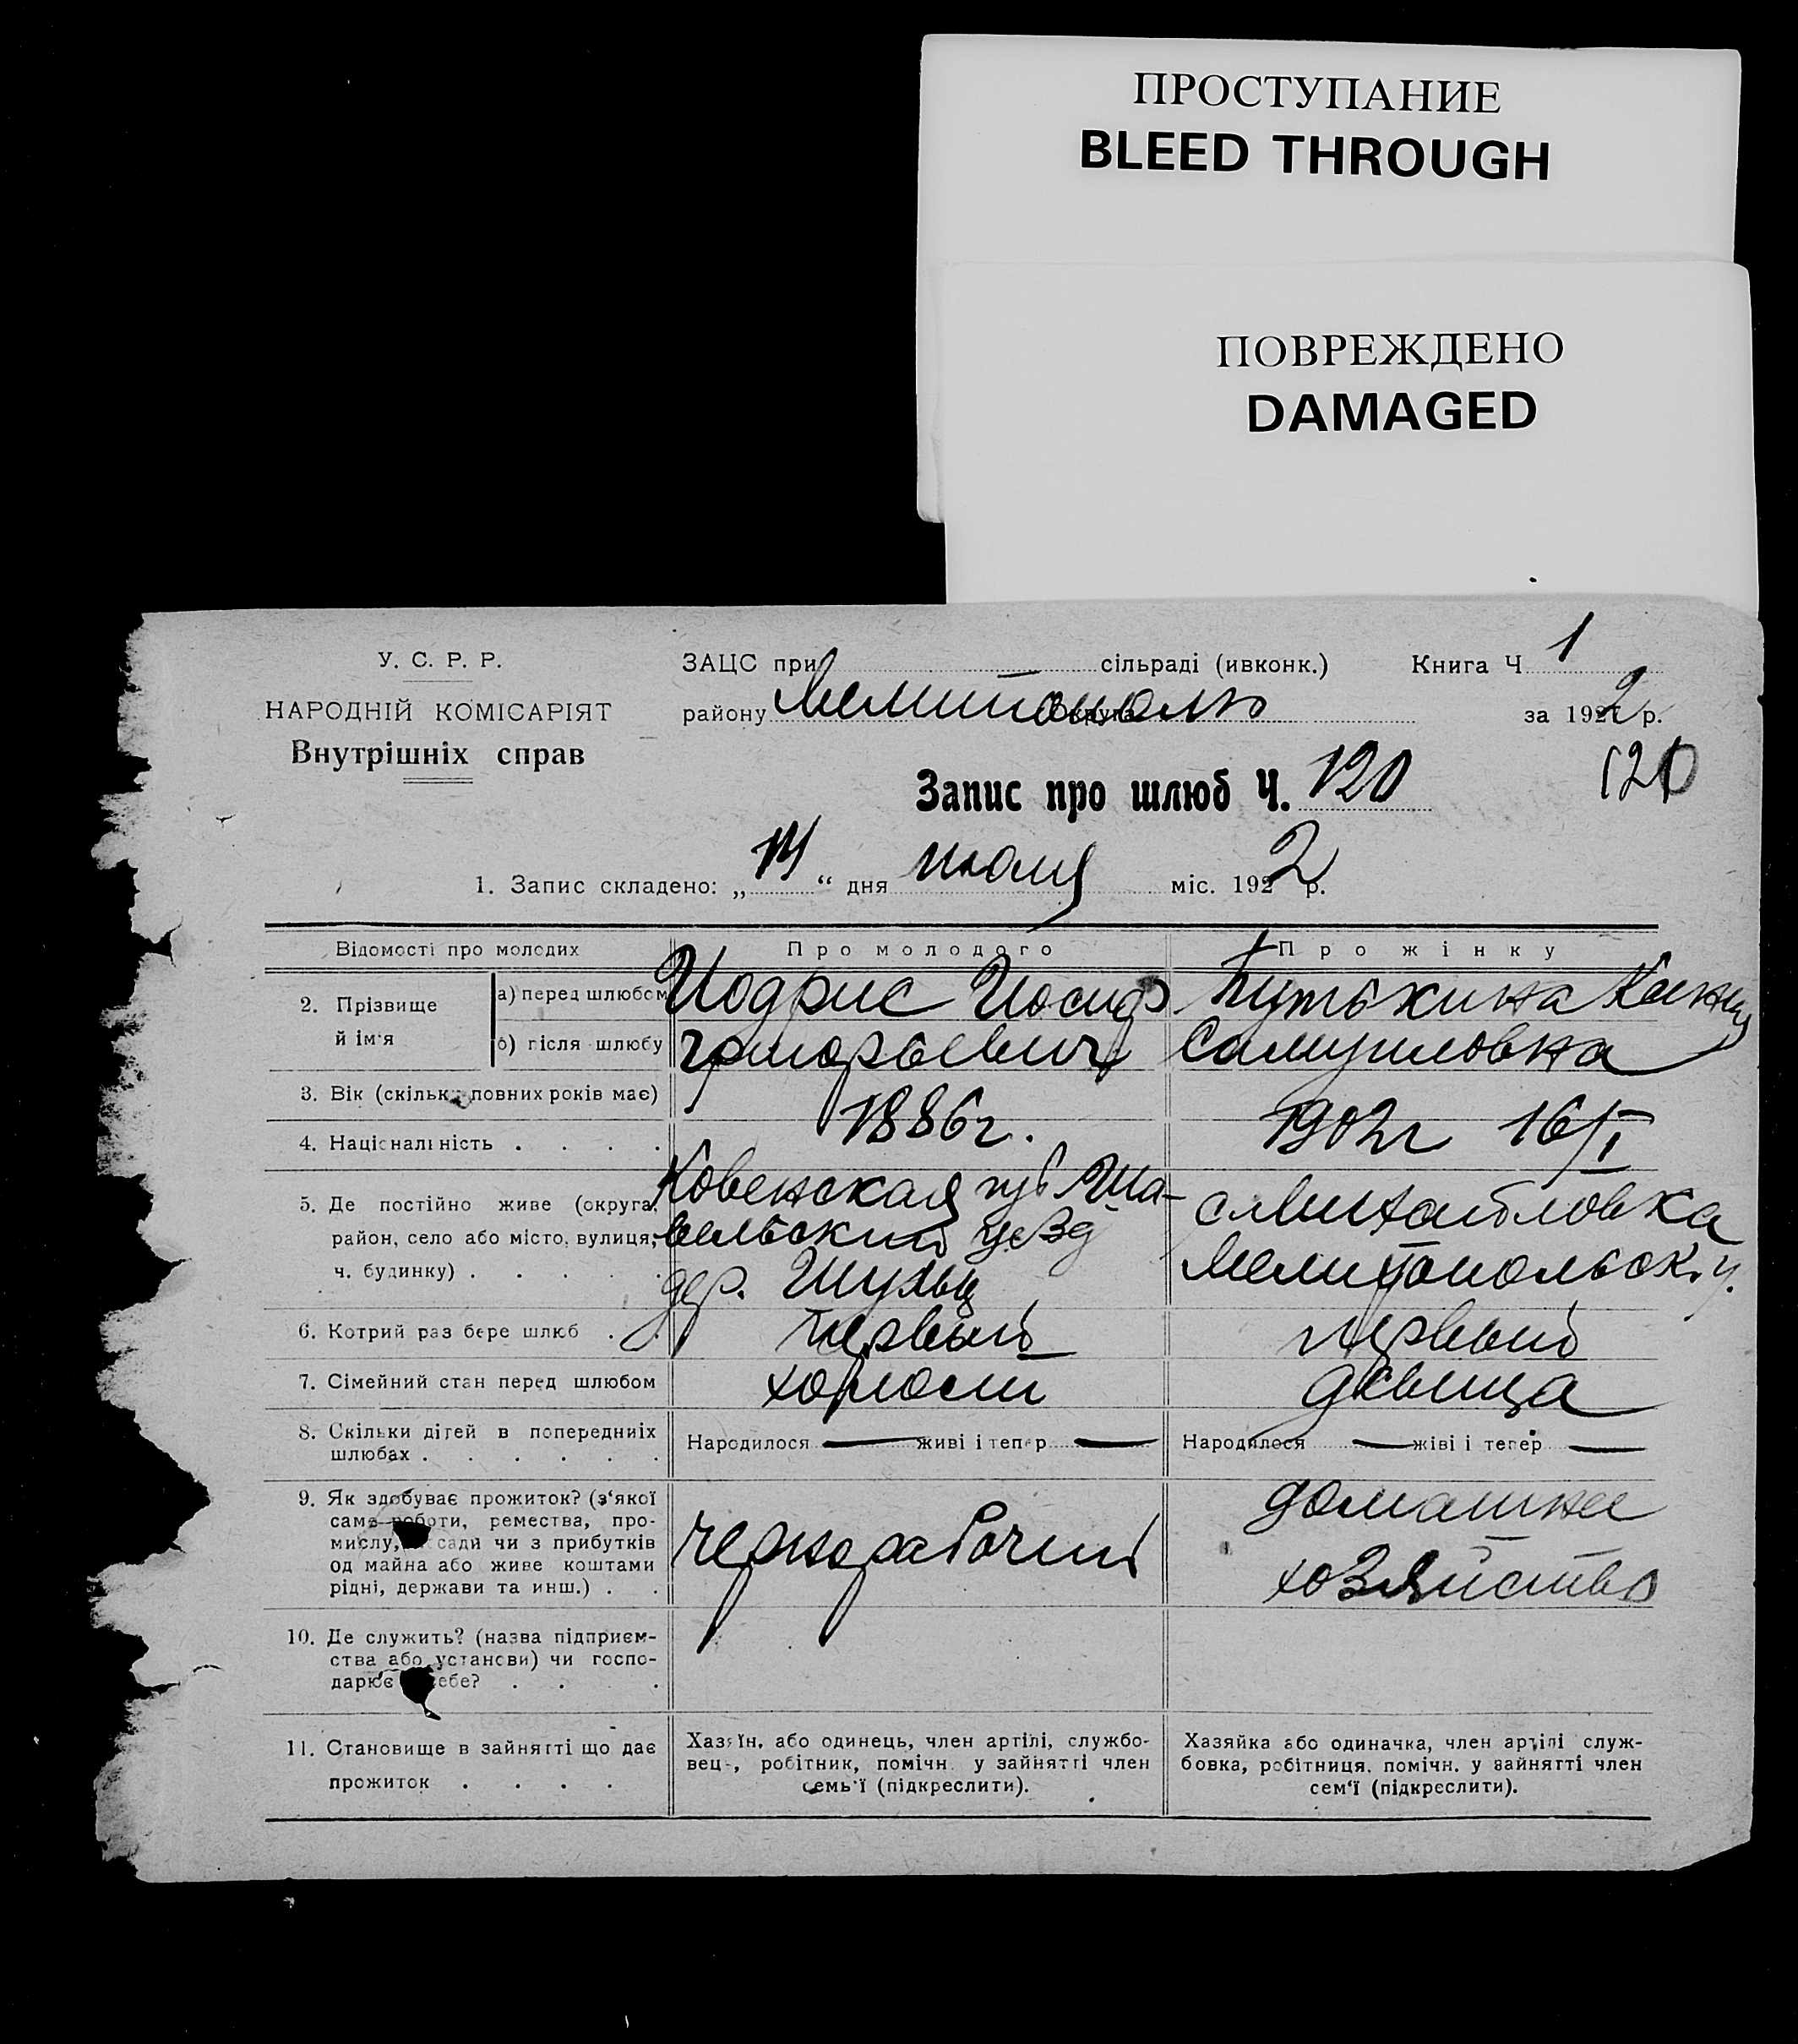 ПРОСТУПАНИЕ
BLEED THROUGH
ПОВРЕЖДЕНО
DAMAGED
У. С. Р. Р.
НАРОДНІЙ КОМІСАРІЯТ
Внутрішніх справ
ЗАЦС при сільраді (ивконк.) Книга Ч 1
району Мелитополь Округа за 1922 р.
Запис про шлюб Ч. 120
120
1. Запис складено: „14“ дня июля міс. 1922 р.
Відомості про молодих Про молодого Про жінку
2. Прізвище й ім'я
а) перед шлюбом Иодрис Иосиф
б) після шлюбу Григорьевич Самуиловна
3. Вік (скільки повних років має)
1886г. 1902г 16/I
4. Національність . . . .
5. Де постійно живе (округа, Ковенская губ Ша-
район, село або місто, вулиця, вельский уезд
ч. будинку) . . . . . дер.
с Михайловка
Мелитопольск. у.
6. Котрий раз бере шлюб . . первый первый
7. Сімейний стан перед шлюбом холост девица
8. Скільки дітей в попередниіх
шлюбах . . . . . .
Народилося — живі і тепер — Народилося — жіві і тепер —
9. Як здобуває прожиток? (з'якої
саме роботи, ремества, про-
мислу, сади чи з прибутків
од майна або живе коштами
рідні, держави та инш.) . .
чернорабочий
домашнее
хозяйство
10. Де служить? (назва підприєм-
ства або установи) чи госпо-
дарює себе? . . .
11. Становище в зайнятті що дає
прожиток . . . .
Хазяїн, або одинець, член артілі, службо-
вець, робітник, помічн. у зайнятті член
семь'ї (підкреслити).
Хазяйка або одиначка, член артілі служ-
бовка, робітниця, помічн. у зайнятті член
сем'ї (підкреслити).